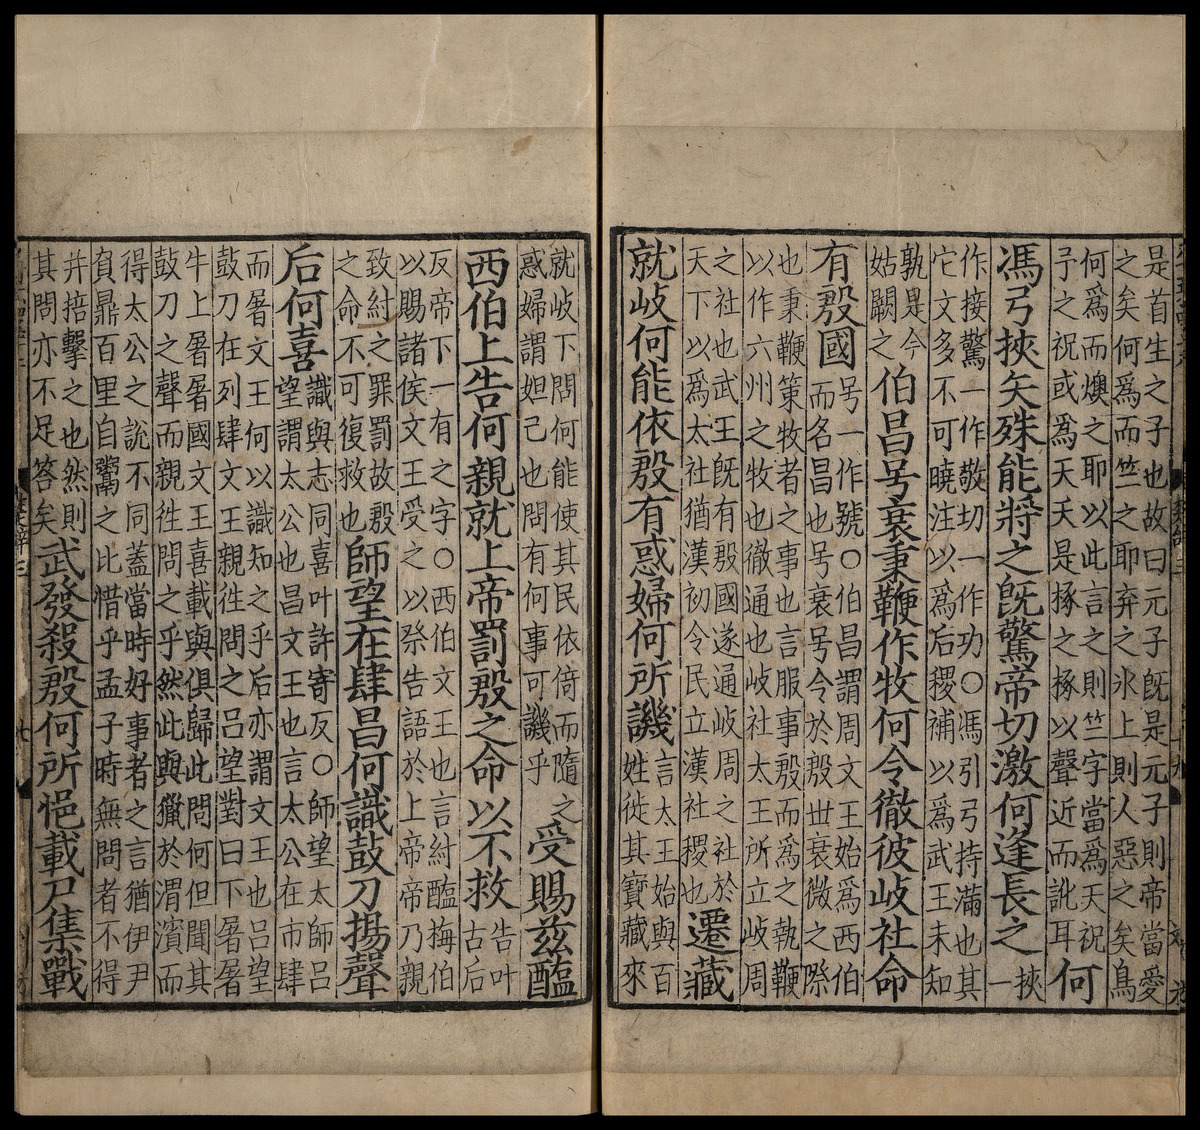 是首生之子也故曰元子既是元子則帝當愛
之矣何爲而竺之耶弃之氷上則人惡之矣鳥
何爲而燠之耶以此言之則竺字當爲天祝
予之祝或爲夭夭是椓之椓以聲近而訛耳
何
馮弓挾矢殊能將之既驚帝切激何逢長之
挾
一
作接驚一作敬切一作功○馮引弓持滿也其
它文多不可曉注以爲后稷補以爲武王未知
孰是今
姑闕之
伯昌号衰秉鞭作牧何令徹彼岐社命
有殷國
号一作號○伯昌謂周文王始爲西伯
而名昌也号衰号令於殷世衰微之際
也秉鞭策牧者之事也言服事殷而爲之執鞭
以作六州之牧也徹通也岐社太王所立岐周
之社也武王既有殷國遂通岐周之社於
天下以爲太社猶漢初令民立漢社稷也
遷藏
就岐何能依殷有惑婦何所譏
言太王始與百
姓徙其寶藏來
就岐下問何能使其民依倚而隨之
惑婦謂妲己也問有何事可譏乎
受賜茲醢
西伯上告何親就上帝罰殷之命以不救
告叶
古后
反帝下一有之字○西伯文王也言紂醢梅伯
以賜諸侯文王受之以祭告語於上帝帝乃親
致紂之罪罰故殷
之命不可復救也
師望在肆昌何識鼓刀揚聲
后何喜
識與志同喜叶許寄反○師望太師呂
望謂太公也昌文王也言太公在市肆
而屠文王何以識知之乎后亦謂文王也呂望
鼓刀在列肆文王親往問之呂望對曰下屠屠
牛上屠屠國文王喜載與俱歸此問何但聞其
鼓刀之聲而親往問之乎然此與獵於渭濱而
得太公之說不同蓋當時好事者之言猶伊尹
負鼎百里自鬻之比惜乎孟子時無問者不得
并掊擊之也然則
其問亦不足答矣
武發殺殷何所悒載尸集戰